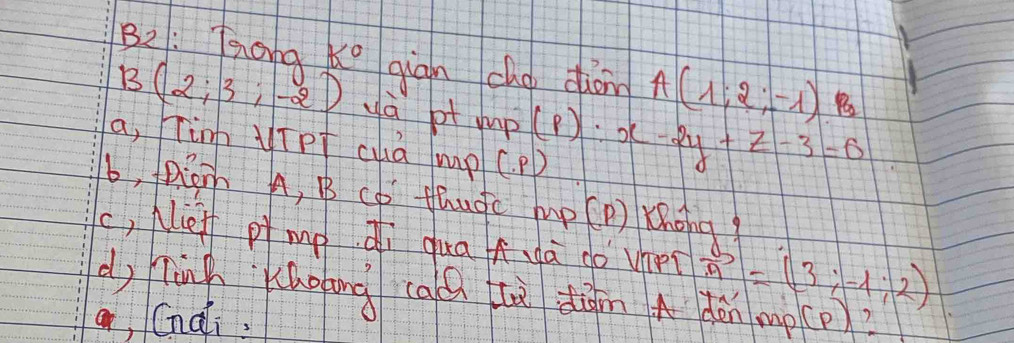 B2: Trong ko gian cho điểm A(1;2;-1)
B(2;3;-2) và pt mp(P): x-2y+z-3=0
a, Tìm VTPT của mp(P)
b, Điểm A, B có thuộc mp(P) không?
c, Viết pt mp đi qua A và có VTPT n⃗ = (3;-1;2)
d) Tính khoảng cách từ điểm A đến mp(P)?
Giải: